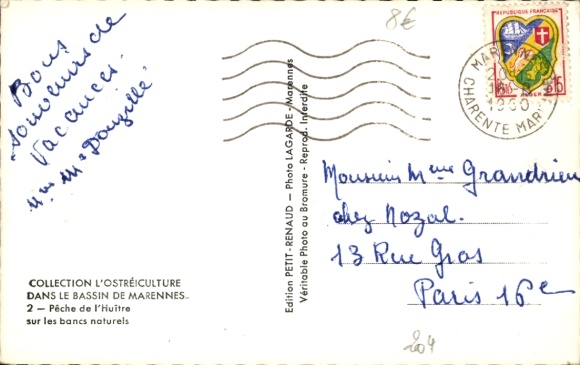 8€
RÉPUBLIQUE FRANÇAISE
ALGER
CHARENTE MAR
1960
Bons
souvenirs de
Vacances.
Mme Mr
Monsieur Mme Grandrieu
chez Nozal.
13 Rue Gros
Paris 16e
Edition PETIT-RENAUD — Photo LAGARDE - Marennes
Véritable Photo au Bromure - Reprod. Interdite
COLLECTION L'OSTRÉICULTURE
DANS LE BASSIN DE MARENNES
2 — Pêche de l'Huître
sur les bancs naturels
204